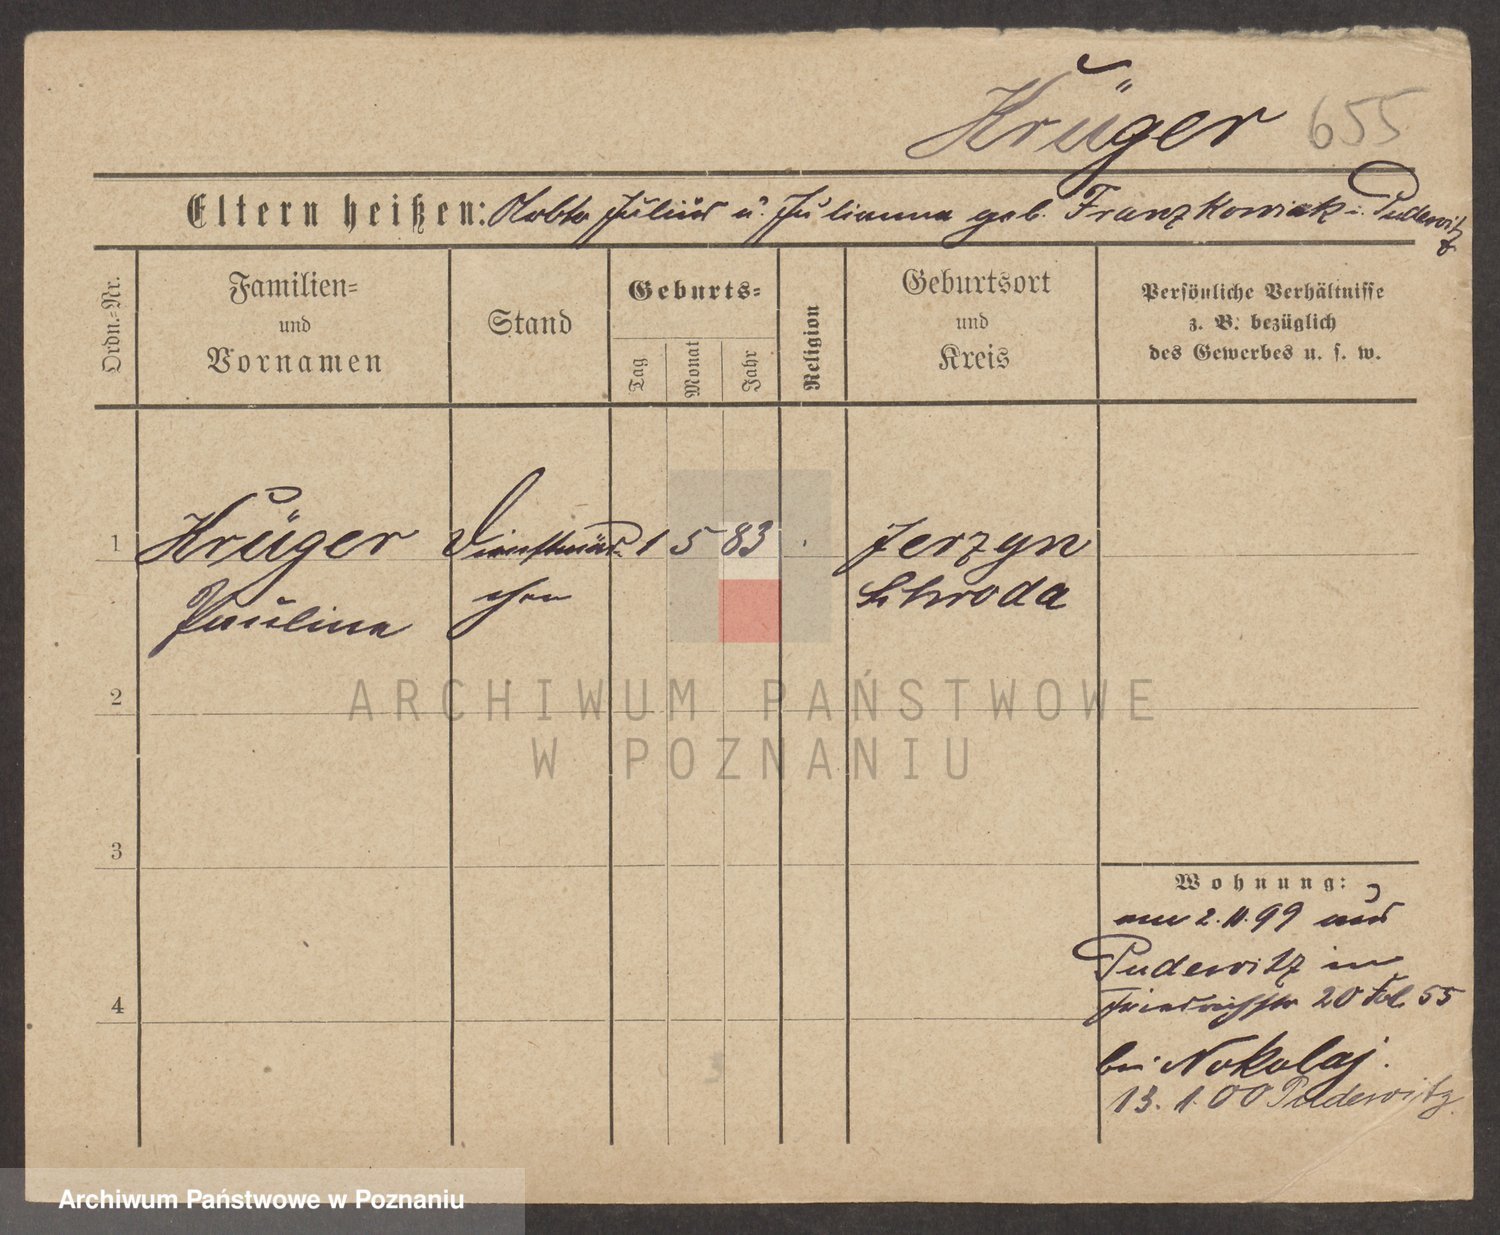 Krüger 655
Eltern heißen: Julius u. Julianna geb. Franzkowiak i. Pudewitz
Ordn.-Nr.
Familien-
und
Vornamen
Stand
Geburts-
Tag
Monat
Jahr
Religion
Geburtsort
und
Kreis
Persönliche Verhältnisse
z. B. bezüglich
des Gewerbes u. s. w.
1 Krüger Dienstmäd- 1 5 83 Jerzyn
Paulina chen Schroda
ARCHIWUM PAŃSTWOWE
W POZNANIU
2
3
4
Wohnung:
am 2.11.99 aus
Pudewitz in
Friedrichstr 20 Fol. 55
bei Nokolaj.
13. 1. 00 Pudewitz.
Archiwum Państwowe w Poznaniu